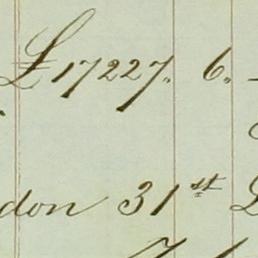 £17227. 6. -
don 31st